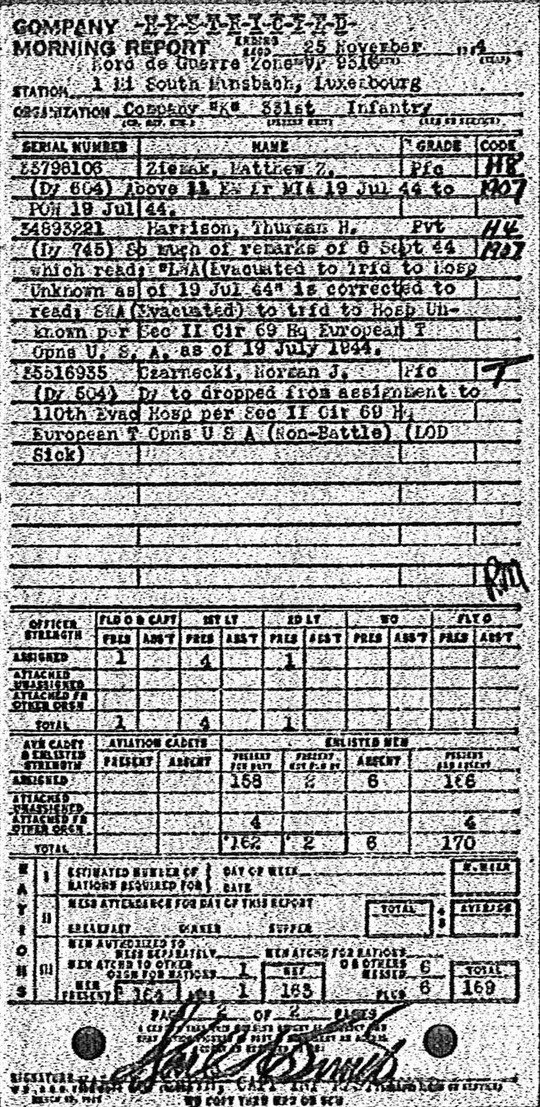 COMPANY -R-E-S-T-R-I-C-T-E-D-
MORNING REPORT ENDING 25 November 4
Nord de Guerre Zone
STATION 1 Mi South Munsbach, Luxembourg
ORGANIZATION Company "K" 331st Infantry
SERIAL NUMBER NAME GRADE CODE
Matthew Z. Pfc
(Dy 604) Above 11 EM fr MIA 19 Jul 44 to 1907
POW 19 Jul 44.
34893221 Harrison, Thurman H. Pvt
(Dy 745) So much of remarks of 6 Sept 44 1907
which read: "LWA (Evacuated to Trfd to Hosp
Unknown as of 19 Jul 44" is corrected to
read: (Evacuated) to trfd to Hosp Un-
known per Sec II Cir 69 Hq European T
Opns U. S. A. as of 19 July 1944.
35516935 Czarnecki, Norman J. Pfc T
(Dy 504) Dy to dropped from assignment to
110th Evac Hosp per Sec II Cir 69 Hq
European T Opns U S A (Non-Battle) (LOD
Sick)
RM
OFFICER STRENGTH FLD O & CAPT 1ST LT 2D LT WO FLT O
PRES ABS'T PRES ABS'T PRES ABS'T PRES ABS'T PRES ABS'T
ASSIGNED 1 4 1
ATTACHED UNASSIGNED
ATTACHED FR OTHER ORGN
TOTAL 1 4 1
AVN CADET & ENLISTED STRENGTH AVIATION CADETS ENLISTED MEN
PRESENT ABSENT PRESENT FOR DUTY PRESENT NOT FOR DY ABSENT PRESENT AND ABSENT
ASSIGNED 158 2 6 166
ATTACHED UNASSIGNED
ATTACHED FR OTHER ORGN 4 4
TOTAL 162 2 6 170
RATIONS
I ESTIMATED NUMBER OF RATIONS REQUIRED FOR DAY OF WEEK DATE NUMBER
II MESS ATTENDANCE FOR DAY OF THIS REPORT TOTAL AVERAGE
BREAKFAST DINNER SUPPER
III MEN AUTHORIZED TO MESS SEPARATELY MEN ATCHD FOR RATIONS
MEN ATCHD TO OTHER ORGN FOR RATIONS 1 NET OFF & OTHERS MESSED 6 TOTAL
MEN PRESENT 164 1 163 PLUS 6 169
PAGE 2 OF 2 PAGES
SIGNATURE